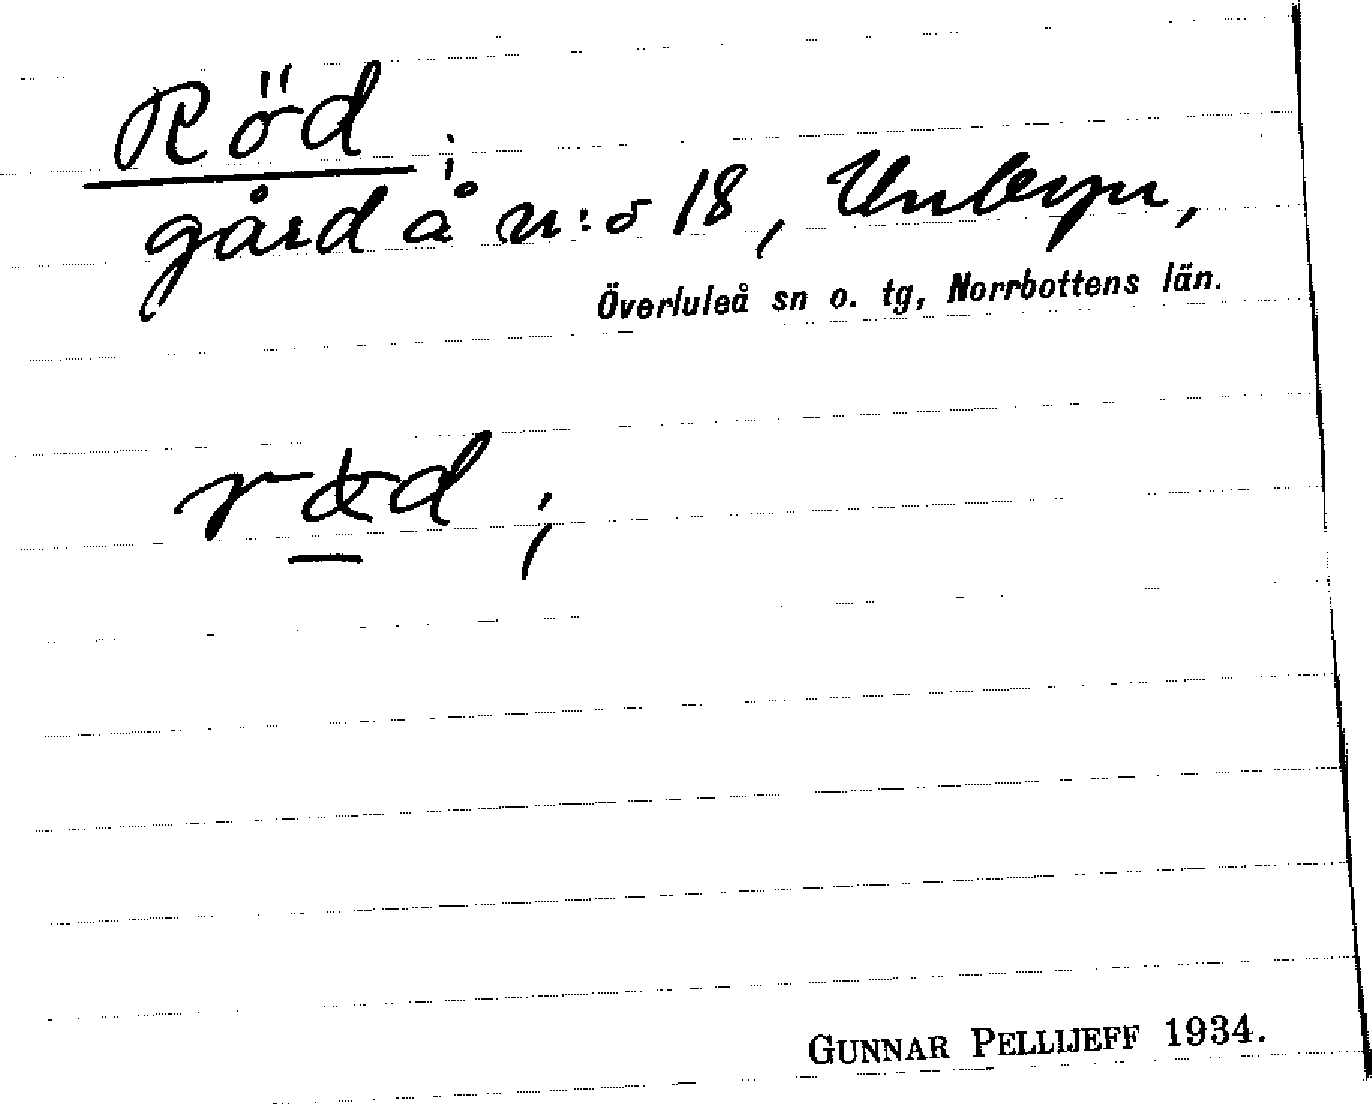 Röd;
gård å n:o 18, Unbyn,
Överluleå sn o. tg, Norrbottens län.
GUNNAR PELLIJEFF 1934.